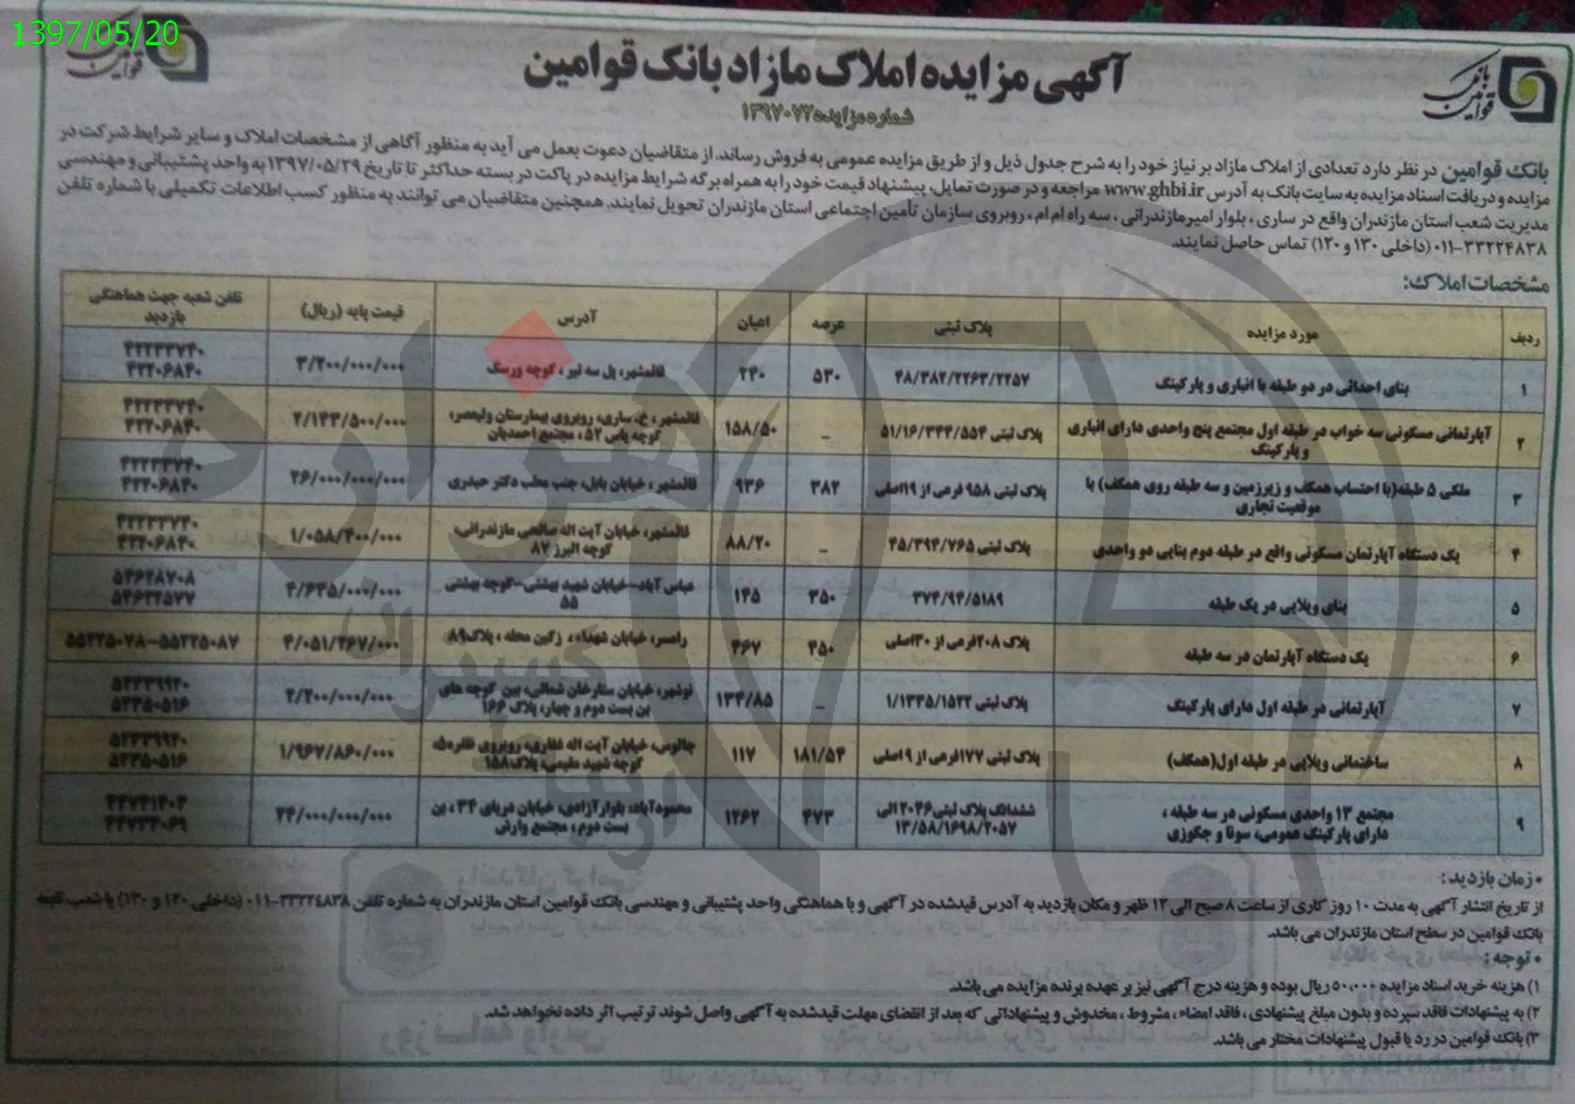 1397/05/20
بانک قوامین
آگهی مزایده املاک مازاد بانک قوامین
بانک قوامین
شماره مزایده ۱۳۹۷۰۷۲
بانک قوامین در نظر دارد تعدادی از املاک مازاد بر نیاز خود را به شرح جدول ذیل و از طریق مزایده عمومی به فروش رساند. از متقاضیان دعوت بعمل می آید به منظور آگاهی از مشخصات املاک و سایر شرایط شرکت در
مزایده و دریافت اسناد مزایده به سایت بانک به آدرس www.ghbi.ir مراجعه و در صورت تمایل، پیشنهاد قیمت خود را به همراه برگه شرایط مزایده در پاکت در بسته حداکثر تا تاریخ ۱۳۹۷/۰۵/۲۹ به واحد پشتیبانی و مهندسی
مدیریت شعب استان مازندران واقع در ساری، بلوار امیرمازندرانی، سه راه ام ام، روبروی سازمان تأمین اجتماعی استان مازندران تحویل نمایند. همچنین متقاضیان می توانند به منظور کسب اطلاعات تکمیلی با شماره تلفن
۰۱۱-۳۳۲۲۴۸۳۸ (داخلی ۱۳۰ و ۱۲۰) تماس حاصل نمایند.
مشخصات املاک:
ردیف مورد مزایده پلاک ثبتی عرصه اعیان آدرس قیمت پایه (ریال) تلفن شعبه جهت هماهنگی
بازدید
۱ بنای احداثی در دو طبقه با انباری و پارکینگ ۴۸/۳۸۲/۲۲۶۳/۲۲۵۷ ۵۳۰ ۲۴۰ قائمشهر، پل سه تیر، کوچه ورسک ۳/۲۰۰/۰۰۰/۰۰۰ ۴۲۲۳۳۷۴۰
۴۲۲۰۶۸۴۰
۲ آپارتمانی مسکونی سه خواب در طبقه اول مجتمع پنج واحدی دارای انباری پلاک ثبتی ۵۱/۱۶/۳۴۴/۵۵۴ _ ۱۵۸/۵۰ قائمشهر، خ. ساری، روبروی بیمارستان ولیعصر، ۲/۱۴۳/۵۰۰/۰۰۰ ۴۲۲۳۳۷۴۰
و پارکینگ کوچه یاس ۵۲، مجتمع احمدیان ۴۲۲۰۶۸۴۰
۳ ملکی ۵ طبقه(با احتساب همکف و زیرزمین و سه طبقه روی همکف) با پلاک ثبتی ۹۵۸ فرعی از ۱۹اصلی ۳۸۲ ۹۳۶ قائمشهر، خیابان بابل، جنب مطب دکتر حیدری ۲۶/۰۰۰/۰۰۰/۰۰۰ ۴۲۲۳۳۷۴۰
موقعیت تجاری ۴۲۲۰۶۸۴۰
۴ یک دستگاه آپارتمان مسکونی واقع در طبقه دوم بنایی دو واحدی پلاک ثبتی ۴۵/۳۹۴/۷۶۵ _ ۸۸/۲۰ قائمشهر، خیابان آیت اله صالحی مازندرانی، ۱/۰۵۸/۴۰۰/۰۰۰ ۴۲۲۳۳۷۴۰
کوچه البرز ۸۷ ۴۲۲۰۶۸۴۰
۵ بنای ویلایی در یک طبقه ۳۷۴/۹۴/۵۱۸۹ ۳۵۰ ۱۴۵ عباس آباد-خیابان شهید بهشتی-کوچه بهشتی ۴/۶۴۵/۰۰۰/۰۰۰ ۵۴۶۲۸۷۰۸
۵۵ ۵۴۶۲۲۵۷۷
۶ یک دستگاه آپارتمان در سه طبقه پلاک ۲۰۸فرعی از ۳۰اصلی ۴۵۰ ۴۶۷ رامسر، خیابان شهداء، زکین محله، پلاک۸۹ ۴/۰۵۱/۲۶۷/۰۰۰ ۵۵۲۲۵۰۷۸-۵۵۲۲۵۰۸۷
۷ آپارتمانی در طبقه اول دارای پارکینگ پلاک ثبتی ۱/۱۳۳۵/۱۵۲۲ _ ۱۳۴/۸۵ نوشهر، خیابان ستارخان شمالی، بین کوچه های ۲/۲۰۰/۰۰۰/۰۰۰ ۵۲۳۳۹۹۲۰
بن بست دوم و چهار، پلاک ۱۶۶ ۵۲۳۵۰۵۱۶
۸ ساختمانی ویلایی در طبقه اول(همکف) پلاک ثبتی ۱۷۷فرعی از ۹ اصلی ۱۸۱/۵۴ ۱۱۷ چالوس، خیابان آیت اله غفاری، روبروی ظفر۵، ۱/۹۶۷/۸۶۰/۰۰۰ ۵۲۳۳۹۹۲۰
کوچه شهید مقیمی، پلاک۱۵۸ ۵۲۳۵۰۵۱۶
۹ مجتمع ۱۳ واحدی مسکونی در سه طبقه، ششدانگ پلاک ثبتی ۲۰۴۶ الی ۴۷۳ ۱۲۶۲ محمودآباد، بلوار آزادی، خیابان دریای ۳۴، بن ۲۴/۰۰۰/۰۰۰/۰۰۰ ۴۴۷۴۱۴۰۴
دارای پارکینگ عمومی، سونا و جکوزی ۱۳/۵۸/۱۶۹۸/۲۰۵۷ بست دوم، مجتمع وارش ۴۴۷۳۲۰۶۹
• زمان بازدید:
از تاریخ انتشار آگهی به مدت ۱۰ روز کاری از ساعت ۸ صبح الی ۱۲ ظهر و مکان بازدید به آدرس قیدشده در آگهی و با هماهنگی واحد پشتیبانی و مهندسی بانک قوامین استان مازندران به شماره تلفن ۳۳۲۲۴۸۳۸-۰۱۱ (داخلی ۱۲۰ و ۱۳۰) یا شعب تابعه
بانک قوامین در سطح استان مازندران می باشد.
• توجه:
۱) هزینه خرید اسناد مزایده ۵۰۰،۰۰۰ ریال بوده و هزینه درج آگهی نیز بر عهده برنده مزایده می باشد.
۲) به پیشنهادات فاقد سپرده و بدون مبلغ پیشنهادی، فاقد امضاء، مشروط، مخدوش و پیشنهاداتی که بعد از انقضای مهلت قیدشده به آگهی واصل شوند ترتیب اثر داده نخواهد شد.
۳) بانک قوامین در رد یا قبول پیشنهادات مختار می باشد.